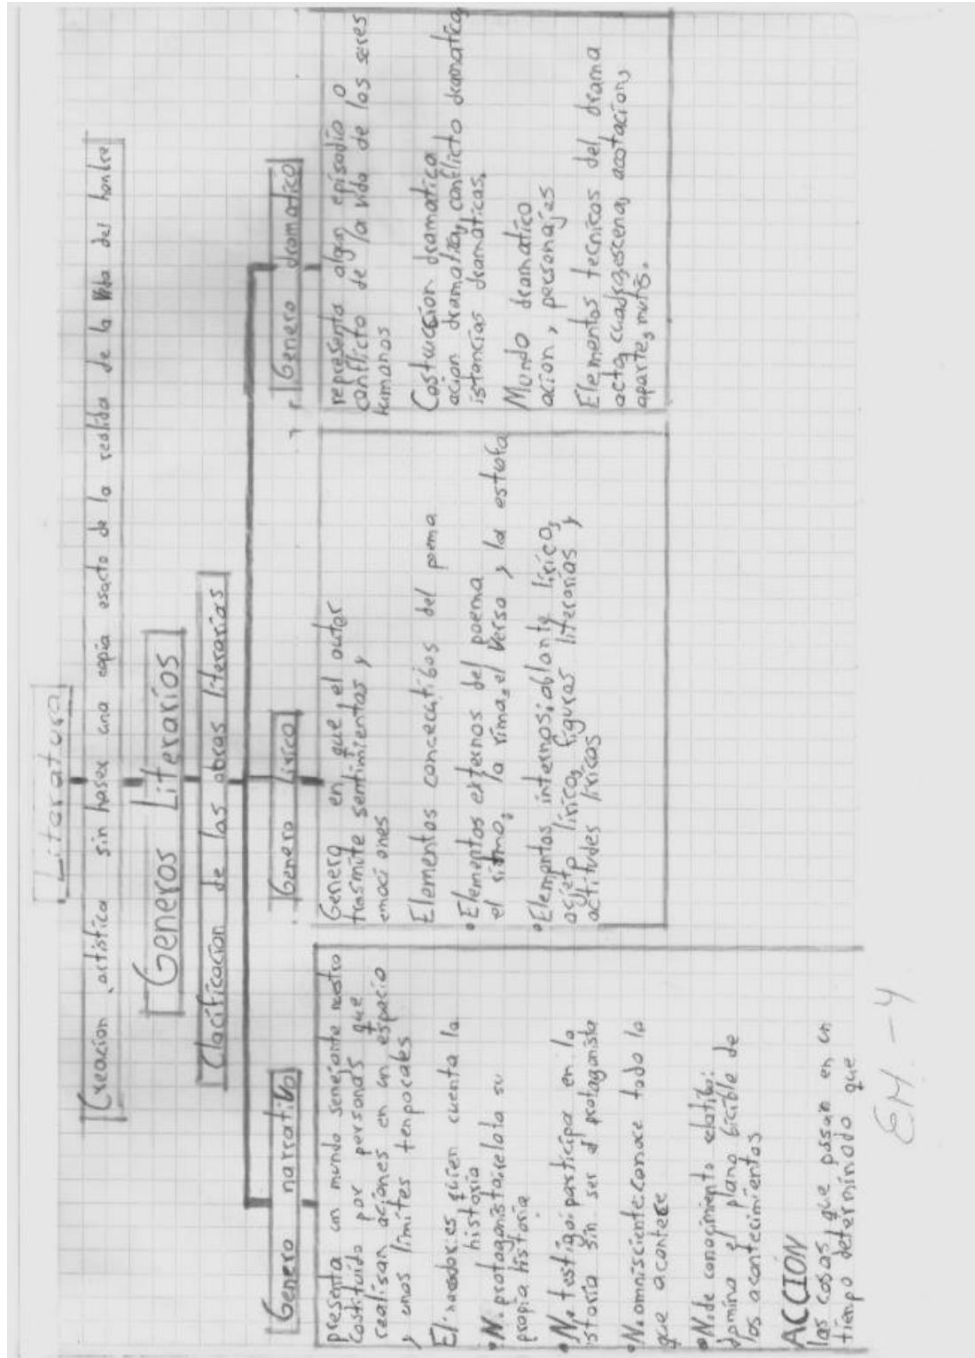 Literatura
Creacion artistica sin haser una copia esacta de la realida de la Vida del honbre
Generos Literarios
Clacificacion de las obras literarias
Genero narratibo
presenta un mundo senejante nuestro
Costituido por personas que
realisan aciones en un espacio
y unos limites tenporales
El naador: es quien cuenta la
historia
•N. protagonista: relata su
propia historia
•N. testigo: participa en la
istoria sin ser el protagonista
•N. omnisciente: conoce todo lo
que acontece
•N. de conocimiento relatibo:
domina el plano bicible de
los acontecimientos
ACCION
las cosas que pasan en un
tienpo determinado que
Genero Lirico
Genero en que el autor
trasmite sentimientos y
emociones
Elementos concecatibos del poema
•Elementos externos del poema
el ritmo, la rima, el Verso y la estrofa
•Elementos internos; ablante lirico,
ojeto lirico, figuras literarias y
actitudes liricas
Genero dramatico
representa algun episodio o
conflicto de la vida de los seres
humanos
Costrucion dramatica
acion dramatica, conflicto dramatico,
istancias dramaticas.
Mundo dramatico
acion, personajes
Elementos tecnicos del drama
acto, cuadro, escena, acotacion,
aparte, mutis.
EM.-4